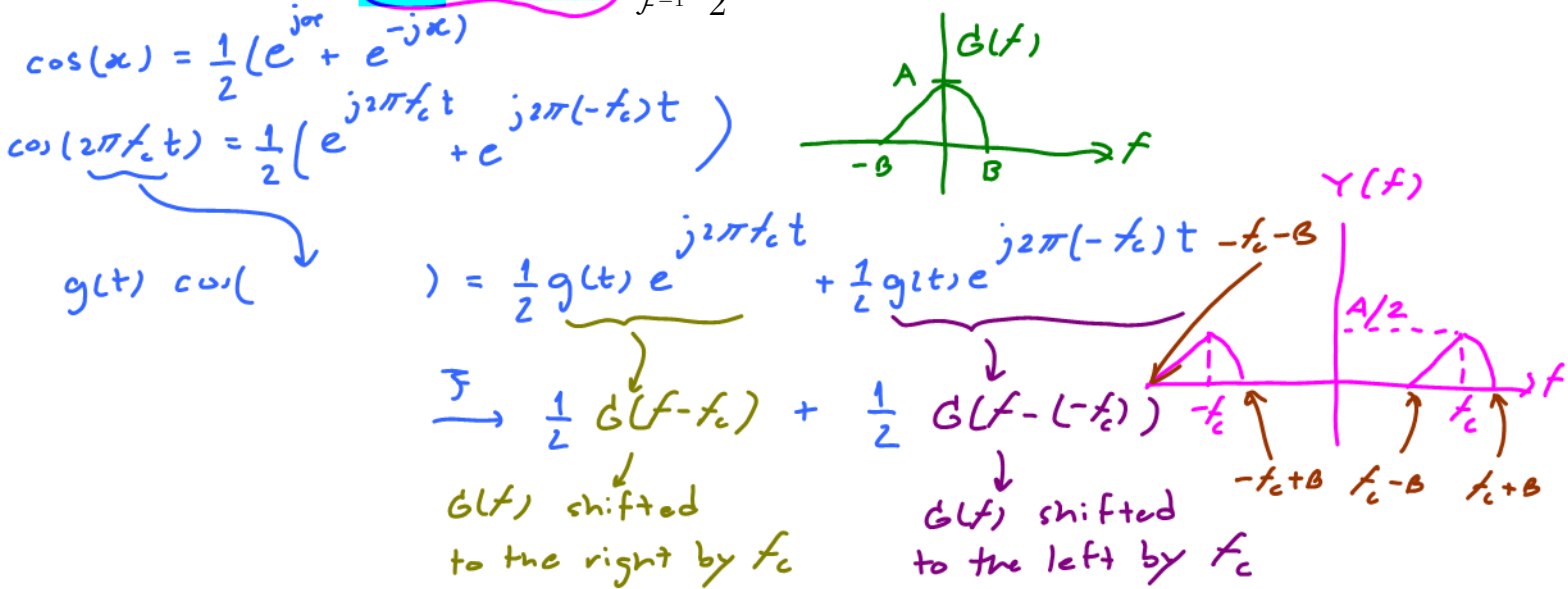 f⁻¹ 2
cos(x) = 1/2 (e^{jx} + e^{-jx})
cos(2πf_c t) = 1/2 (e^{j2πf_c t} + e^{j2π(-f_c)t})
G(f)
A
-B
B
f
g(t) cos( ) = 1/2 g(t) e^{j2πf_c t} + 1/2 g(t) e^{j2π(-f_c)t}
F → 1/2 G(f-f_c) + 1/2 G(f-(-f_c))
G(f) shifted
to the right by f_c
G(f) shifted
to the left by f_c
Y(f)
-f_c-B
A/2
-f_c
f_c
f
-f_c+B
f_c-B
f_c+B